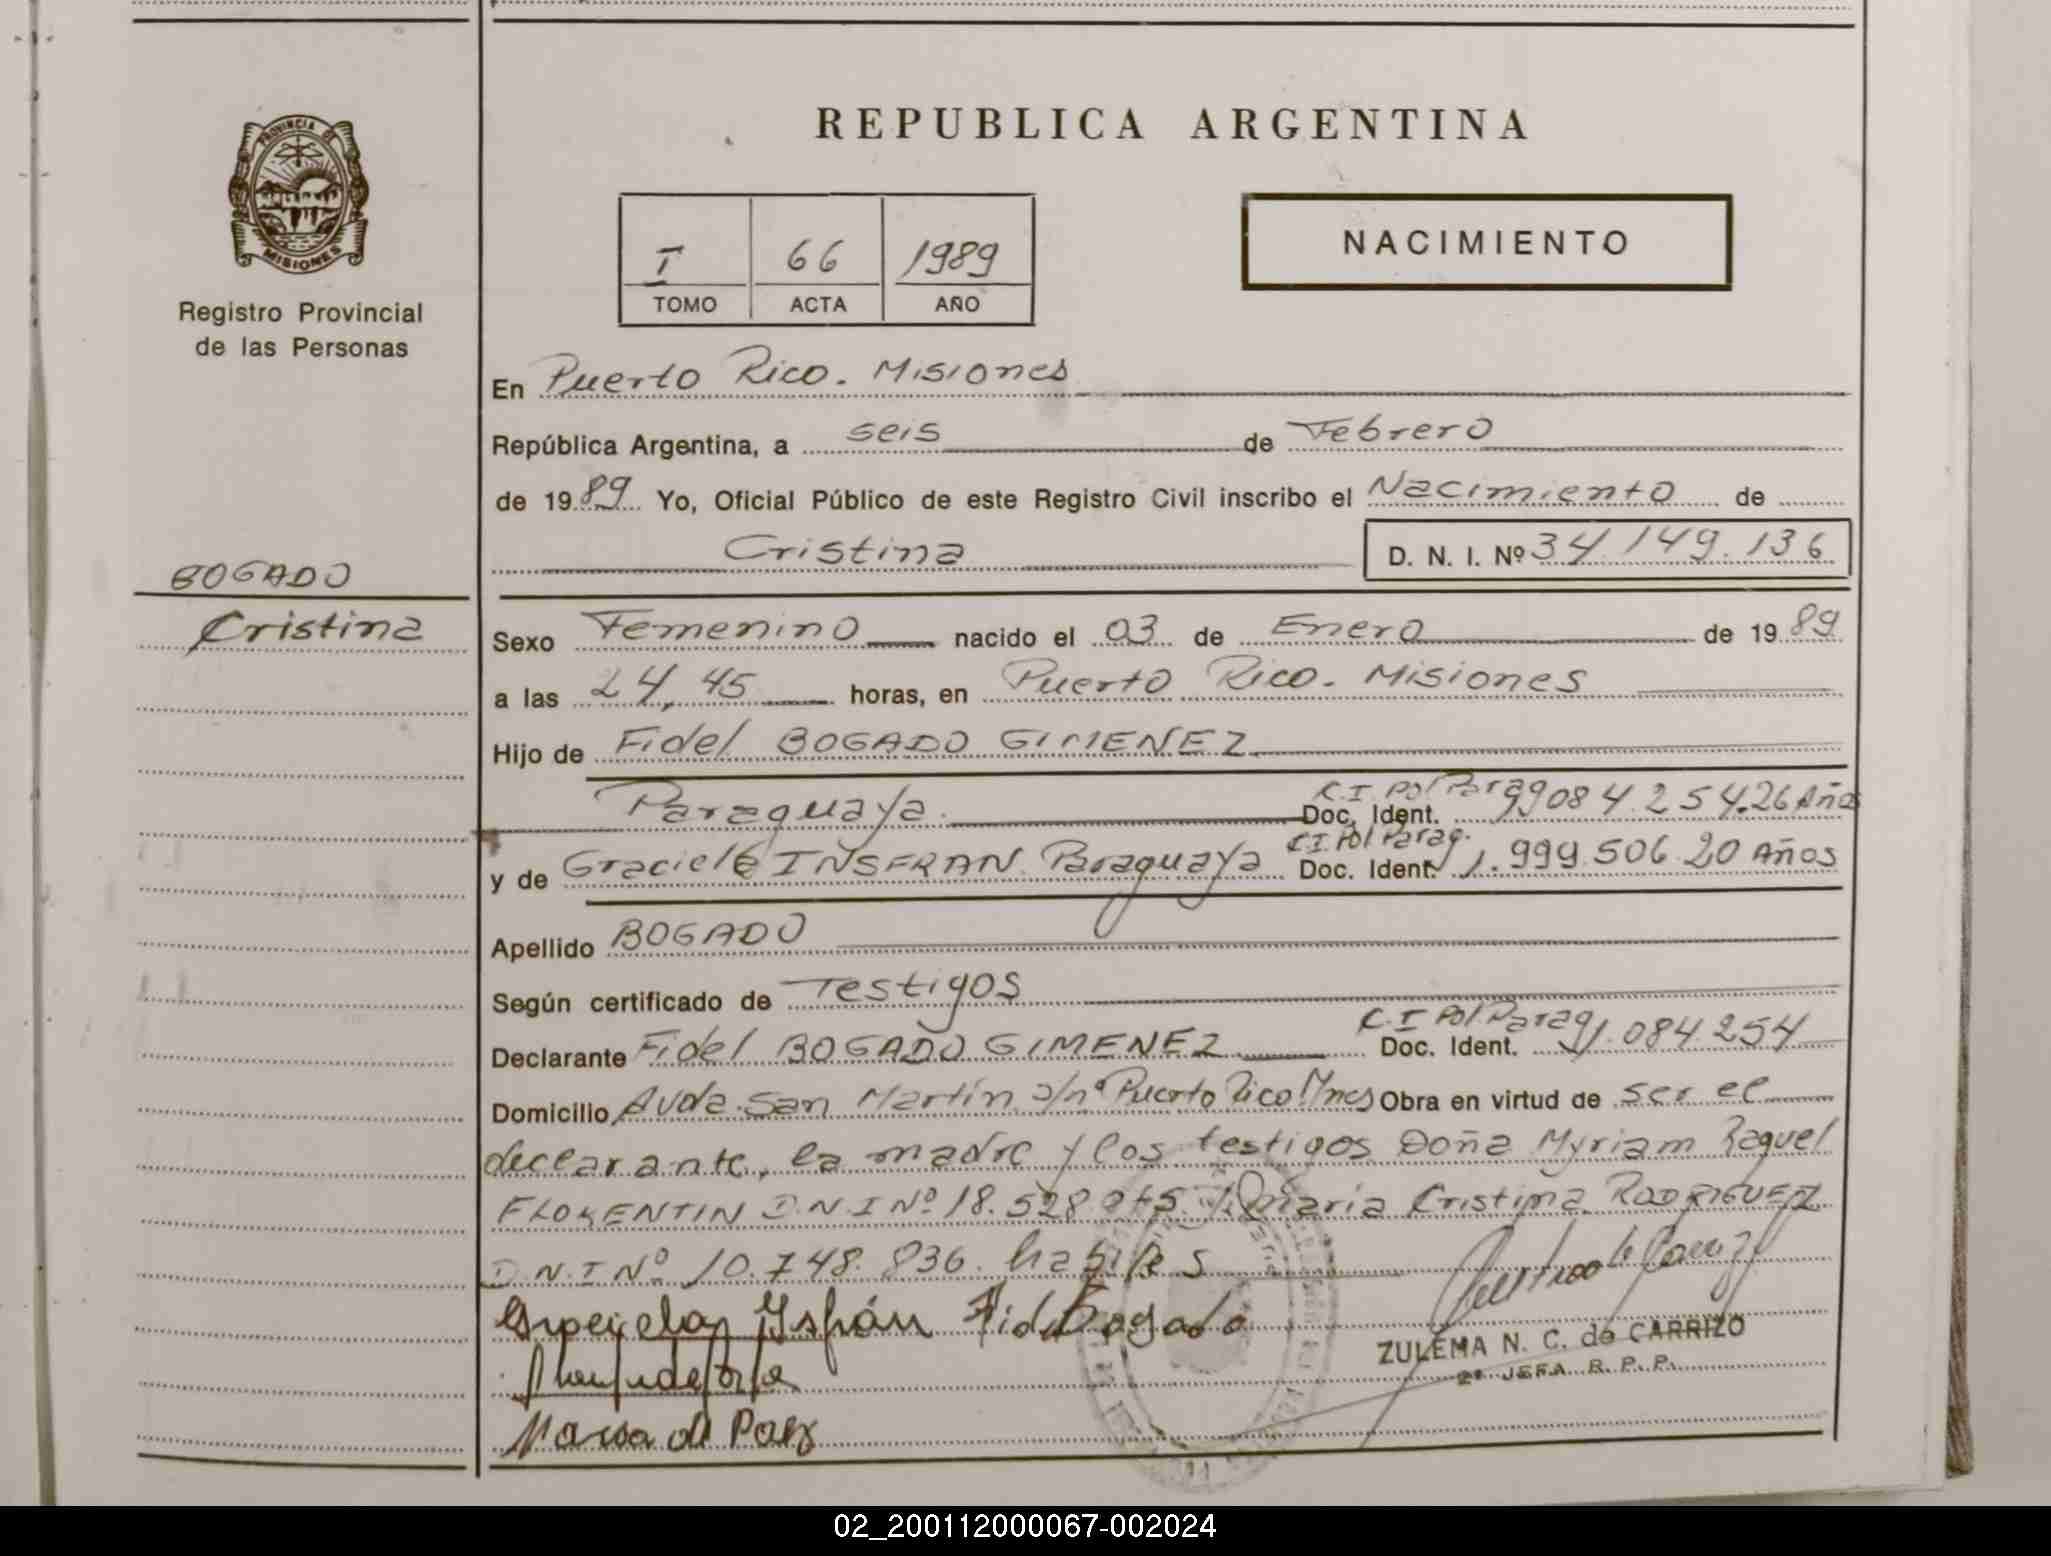 PROVINCIA DE
MISIONES
Registro Provincial
de las Personas
REPUBLICA ARGENTINA
I 66 1989
TOMO ACTA AÑO
NACIMIENTO
En Puerto Rico. Misiones
República Argentina, a seis de Febrero
de 1989 Yo, Oficial Público de este Registro Civil inscribo el Nacimiento de
Cristina D. N. I. Nº 34.149.136
BOGADO
Cristina
Sexo Femenino nacido el 03 de Enero de 1989
a las 24,45 horas, en Puerto Rico. Misiones
Hijo de Fidel BOGADO GIMENEZ
Paraguaya. Doc. Ident. C.I. Pol Parag 084.254.26 Años
y de Graciela INSFRAN Paraguaya Doc. Ident. C.I. Pol Parag. 1.999.506 20 Años
Apellido BOGADO
Según certificado de Testigos
Declarante Fidel BOGADO GIMENEZ Doc. Ident. C.I Pol. Parag 1.084.254
Domicilio Avda. San Martín s/nº Puerto Rico Mnes Obra en virtud de ser el
declarante, la madre y los testigos Doña Myriam Raquel
FLORENTIN D.N.I Nº 18.528 María Cristina RODRIGUEZ
D.N.I Nº 10.748.836. habiles
Graciela Isfrán Fidel Bogado
ZULEMA N. C. de CARRIZO
2ª JEFA R. P. P.
02_200112000067-002024